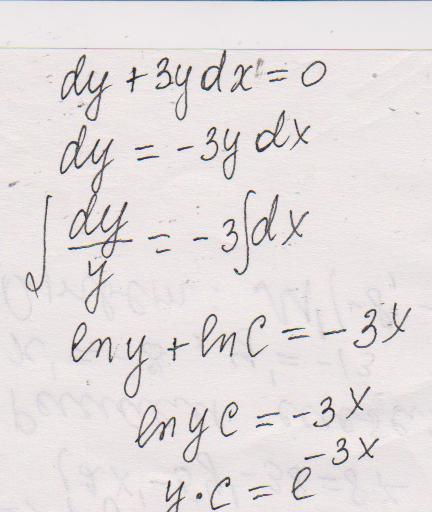 dy + 3y dx = 0
dy = -3y dx
∫ dy/y = -3∫dx
ln y + ln C = -3x
ln y C = -3x
y · C = e^{-3x}